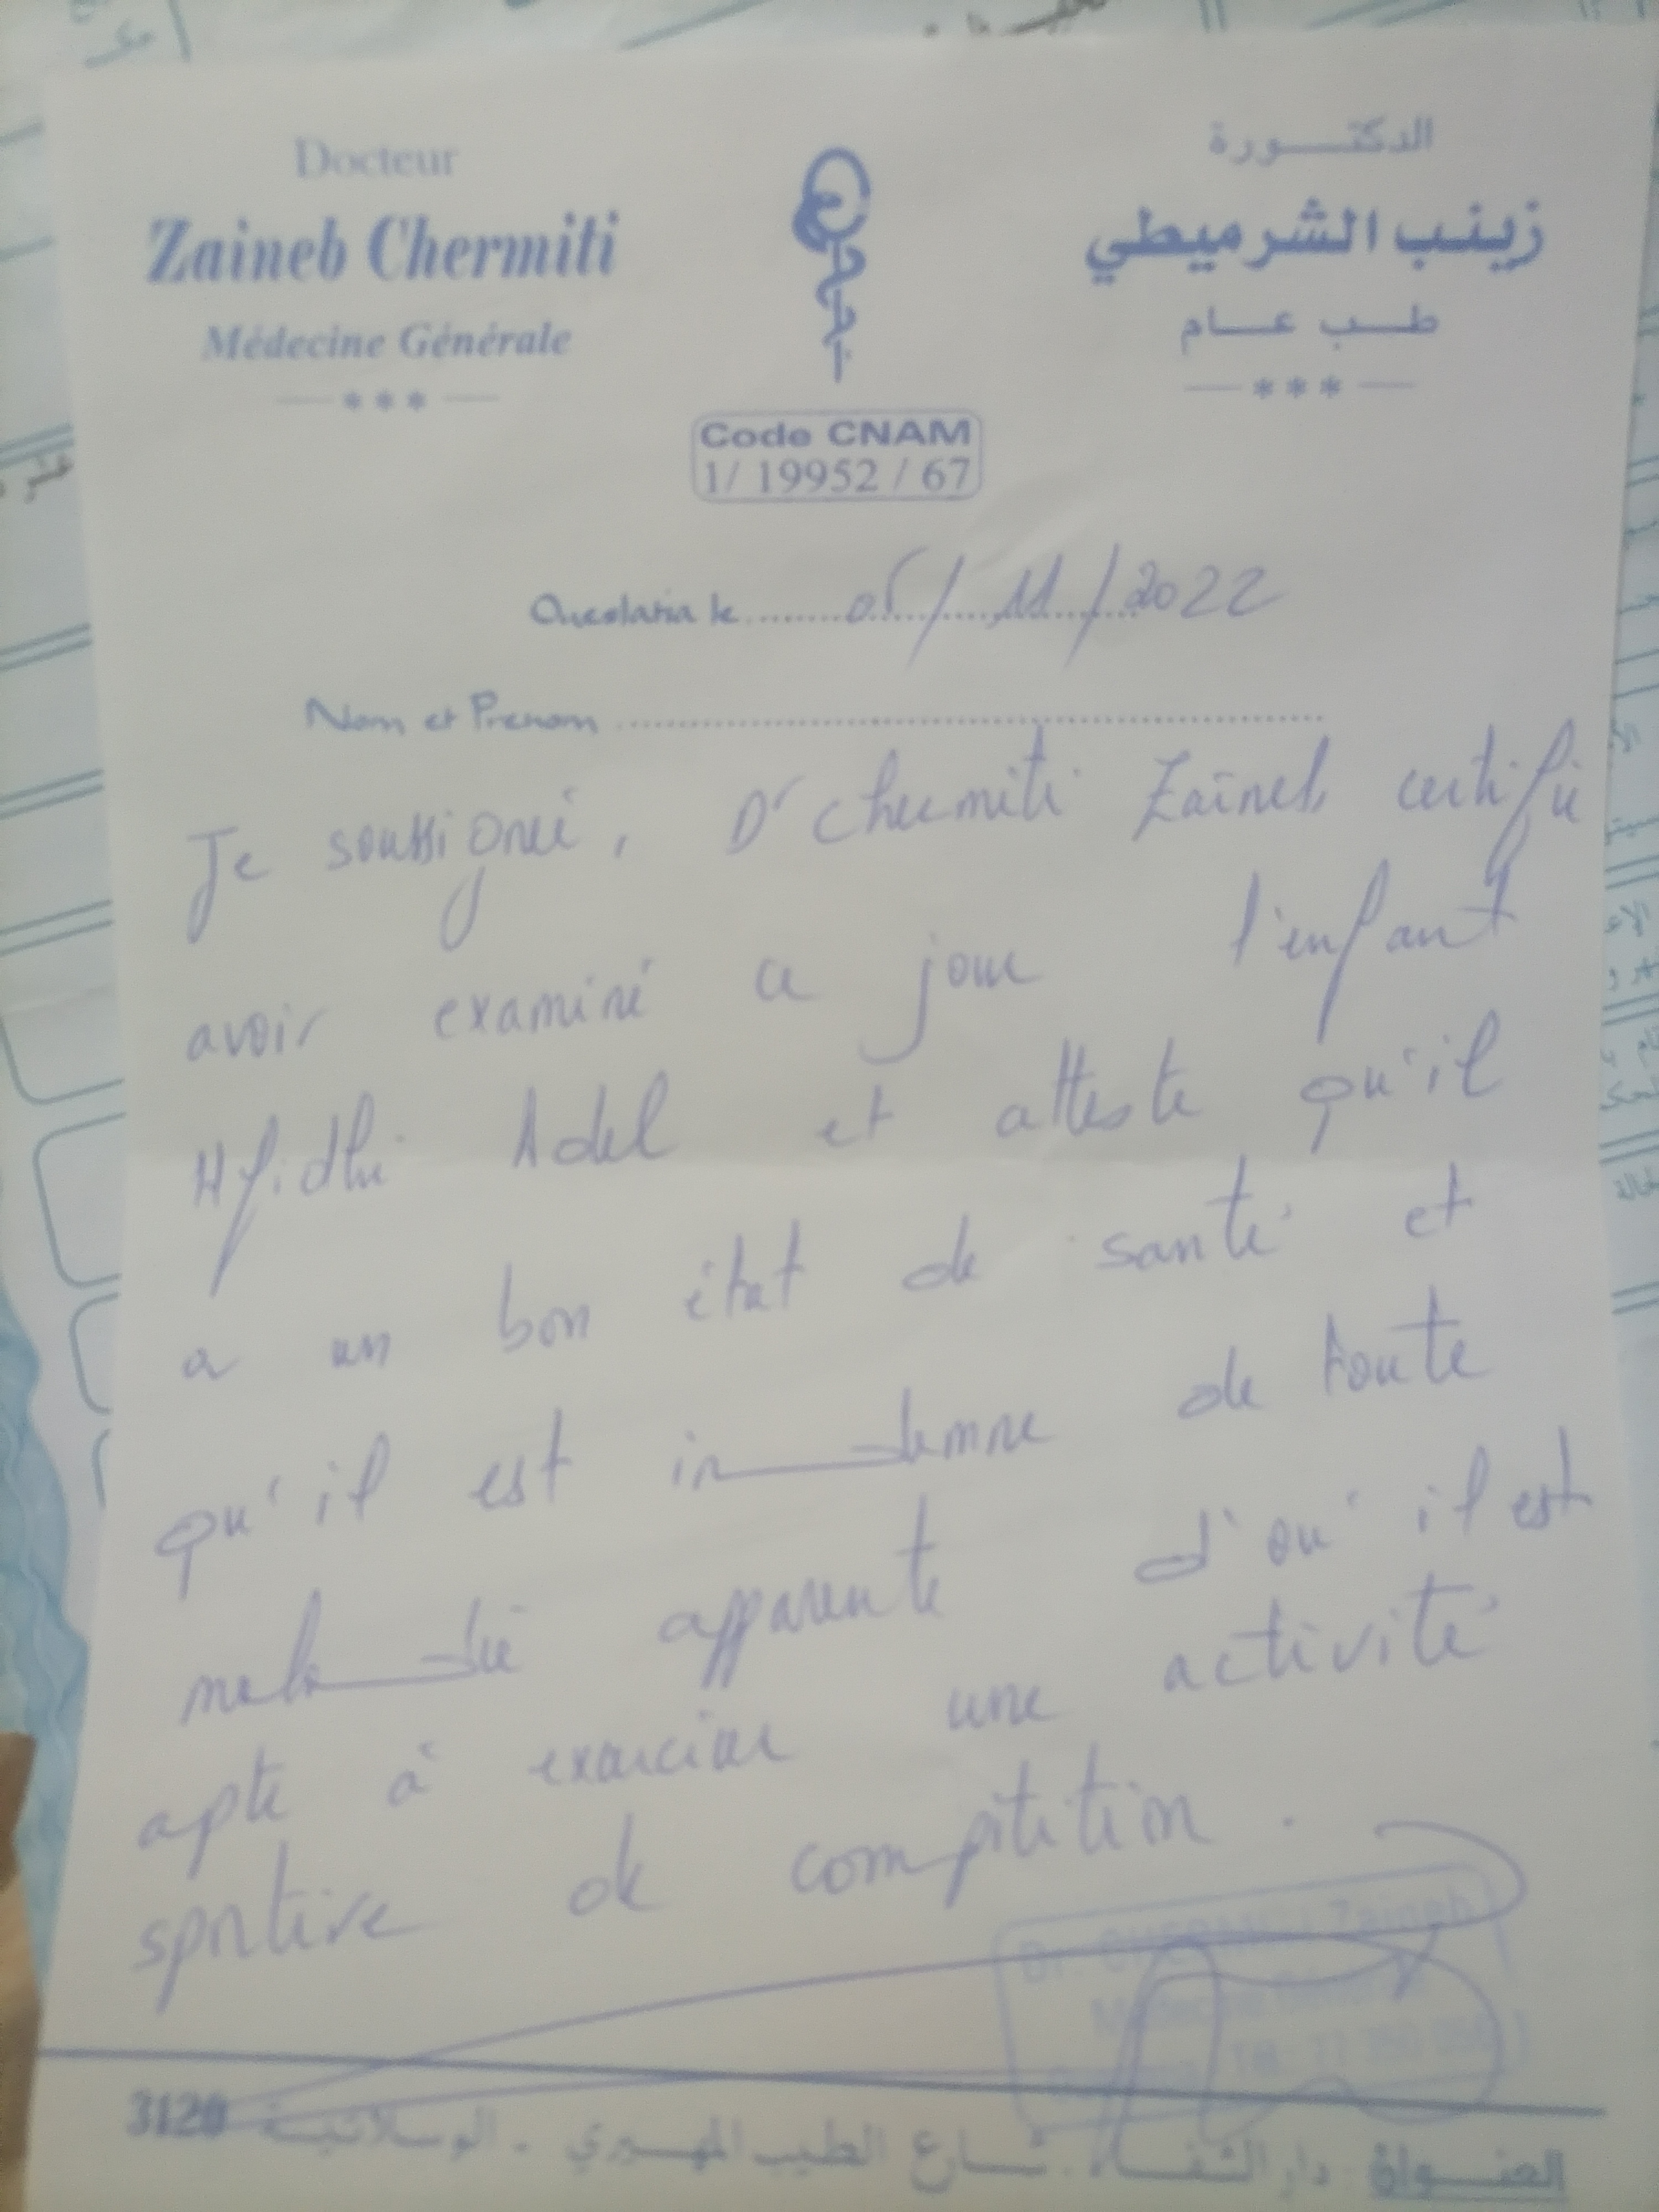 Docteur
Zaineb Chermiti
Médecine Générale
***
الدكتـــورة
زينب الشرميطي
طــب عــام
***
Code CNAM
1/ 19952 / 67
Oueslatia le ........ 05/11/2022
Nom et Prenom ........
Je soussigné, Dr Chermiti Zaïneb certifie
avoir examiné ce jour l'enfant
Hfidhi Adel et atteste qu'il
a un bon état de santé et
qu'il est indemne de toute
maladie apparente d'où il est
apte à exercier une activité
sportive de compétition.
Dr. CHERMITI Zaineb
العنــوان دار الشفــاء. شــارع الطيب المهيري - الوسلاتيــة 3120